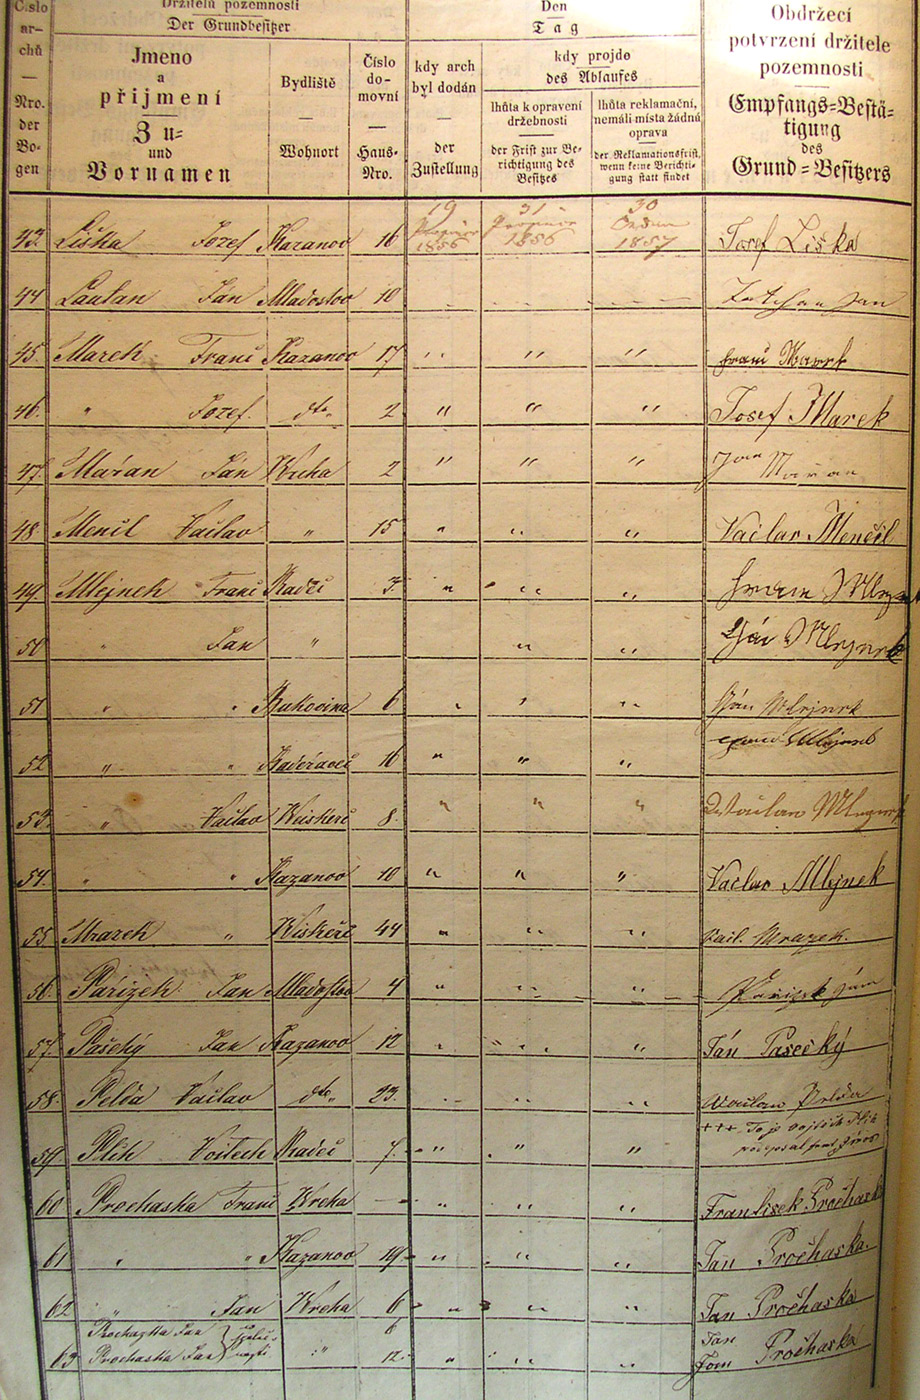 Číslo archů
—
Nro. der Bogen
Držitelů pozemností
Der Grundbesitzer
Jmeno
a
přijmení
Zu-
und
Vornamen
Bydliště
—
Wohnort
Číslo domovní
—
Haus-Nro.
Den
Tag
kdy arch
byl dodán
—
der
Zustellung
kdy projde
des Ablaufes
lhůta k opravení
držebnosti
der Frist zur Be-
richtigung des
Besitzes
lhůta reklamační,
nemáli místa žádná
oprava
der Reklamationsfrist,
wenn keine Berichti-
gung statt findet
Obdržecí
potvrzení držitele
pozemnosti
Empfangs=Bestä-
tigung
des
Grund=Besitzers
43. Liška Jozef Kazanov 16 19 1856 31 1856 30 1857 Josef Liška
44 Lautan Ján Mladostov 10
45. Marek Franc Kazanov 17 " " " Franc Marek
46. " Jozef dto 2 " " " Josef Marek
47. Mařan Ján Wrcha 2 " " " Jan Mařan
48. Menčl Václav " 15 " " " Václav Menčil
49 Mlejnek Franc Radči 7. " " "
50 " Jan " " " Ján Mlejnek
51 " " Bukovina 6 " " " Ján Mlejnek
52 " " 16 " " "
53. " Václav 8. " " " Mlejnek
54. " " Kazanov 10 " " " Václav Mlejnek
55 Mrazek " 44 " " " Vacl. Mrazek.
56. Pařizek Jan Mladostov 4 " " " Pařizek Ján
57. Pasecký Jan Kazanov 12 " " " Ján Pasecký
58. Pelda Václav dto 23. " " " Pelda
59 Plch Vojtech Radči 7. " " " +++ To je Vojtěch Plch
60 Prochaska Franc Wrcha — " " " Frantisek Prochaska
61 " " Kazanov 19 " " " Jan Prochaska.
62 " Jan Wrcha 6 " " " Jan Prochaska
Prochazka Jan 6 Jan
63 Prochaska Jan " 12. " " " Prochaska